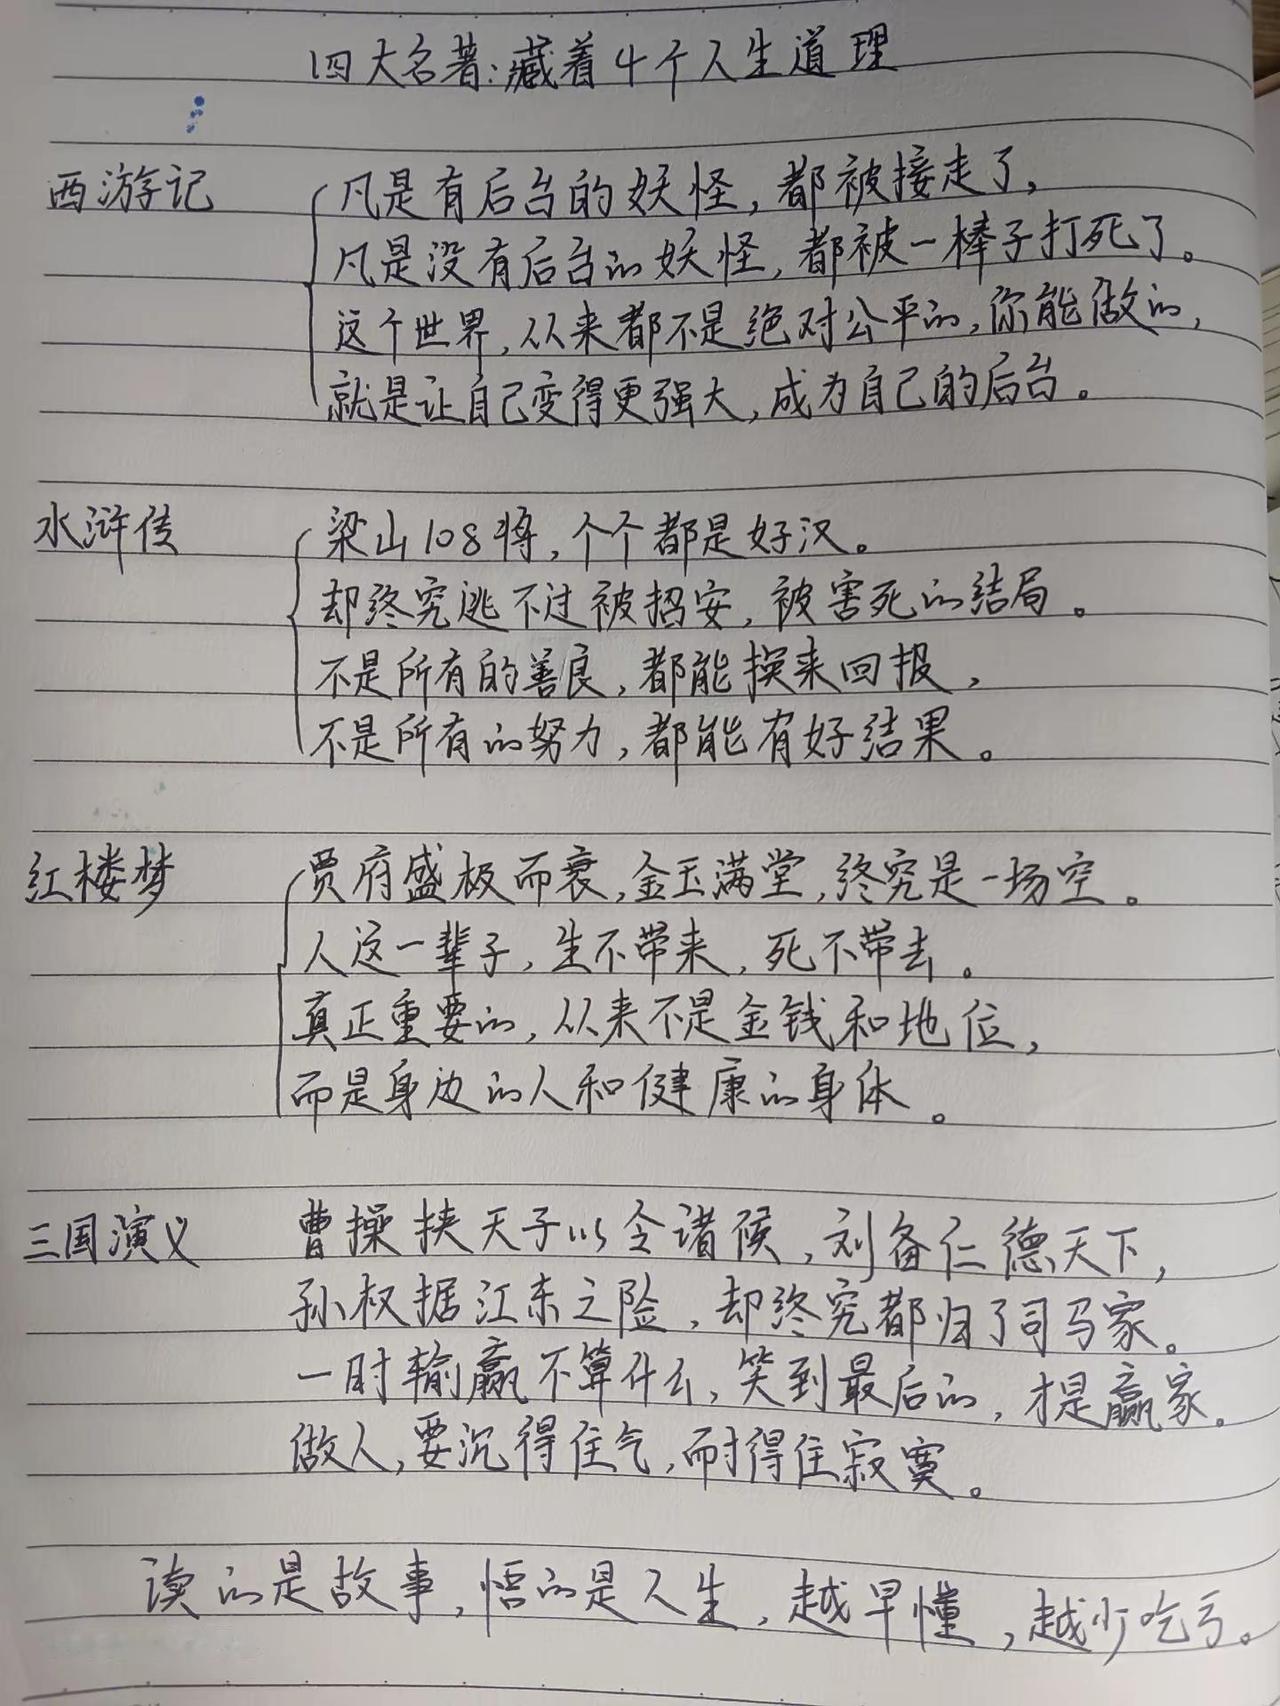 四大名著:藏着4个人生道理
西游记 凡是有后台的妖怪,都被接走了,
凡是没有后台的妖怪,都被一棒子打死了。
这个世界,从来都不是绝对公平的,你能做的,
就是让自己变得更强大,成为自己的后台。
水浒传 梁山108将,个个都是好汉。
却终究逃不过被招安,被害死的结局。
不是所有的善良,都能换来回报,
不是所有的努力,都能有好结果。
红楼梦 贾府盛极而衰,金玉满堂,终究是一场空。
人这一辈子,生不带来,死不带去。
真正重要的,从来不是金钱和地位,
而是身边的人和健康的身体。
三国演义 曹操挟天子以令诸候,刘备仁德天下,
孙权据江东之险,却终究都归了司马家。
一时输赢不算什么,笑到最后的,才是赢家。
做人,要沉得住气,耐得住寂寞。
读的是故事,悟的是人生,越早懂,越少吃亏。